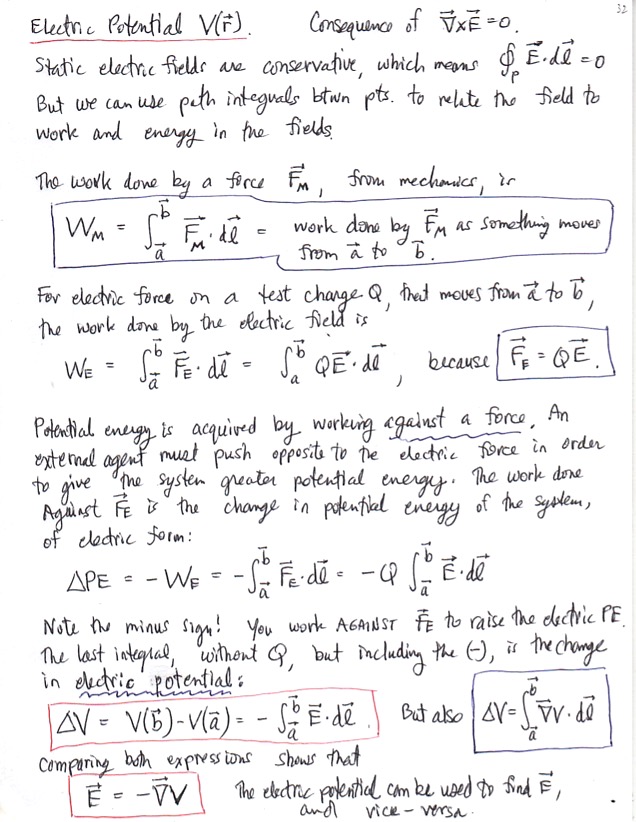 32
Electric Potential V(r⃗). Consequence of ∇⃗×E⃗=0.
Static electric fields are conservative, which means ∮ₚ E⃗·dl⃗ = 0
But we can use path integrals btwn pts. to relate the field to
work and energy in the fields.
The work done by a force F⃗_M, from mechanics, is
W_M = ∫_a⃗^b⃗ F⃗_M·dl⃗ = work done by F⃗_M as something moves
from a⃗ to b⃗.
For electric force on a test charge Q, that moves from a⃗ to b⃗,
the work done by the electric field is
W_E = ∫_a⃗^b⃗ F⃗_E·dl⃗ = ∫_a^b⃗ QE⃗·dl⃗, because F⃗_E = QE⃗.
Potential energy is acquired by working against a force. An
external agent must push opposite to the electric force in order
to give the system greater potential energy. The work done
Against F⃗_E is the change in potential energy of the system,
of electric form:
ΔPE = -W_E = -∫_a⃗^b⃗ F⃗_E·dl⃗ = -Q ∫_a⃗^b⃗ E⃗·dl⃗
Note the minus sign! You work AGAINST F⃗_E to raise the electric PE.
The last integral, without Q, but including the (-), is the change
in electric potential:
ΔV = V(b⃗)-V(a⃗) = -∫_a⃗^b⃗ E⃗·dl⃗. But also ΔV = ∫_a⃗^b⃗ ∇⃗V·dl⃗
Comparing both expressions shows that
E⃗ = -∇⃗V The electric potential can be used to find E⃗,
and vice-versa.